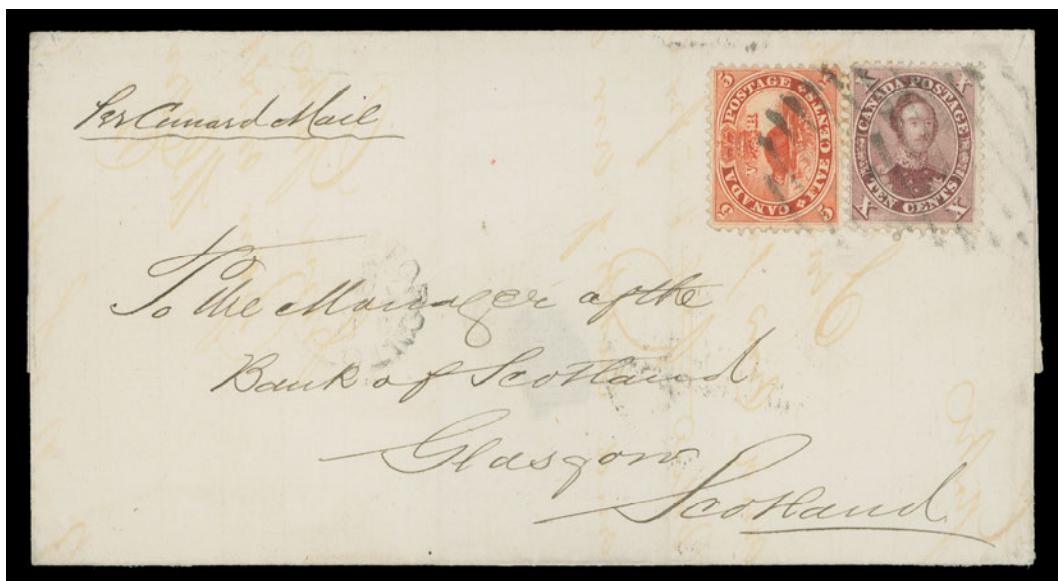 Per Cunard Mail
5 POSTAGE FIVE CENTS CANADA 5
X CANADA POSTAGE X
X TEN CENTS X
To the Manager of the
Bank of Scotland
Glasgow
Scotland